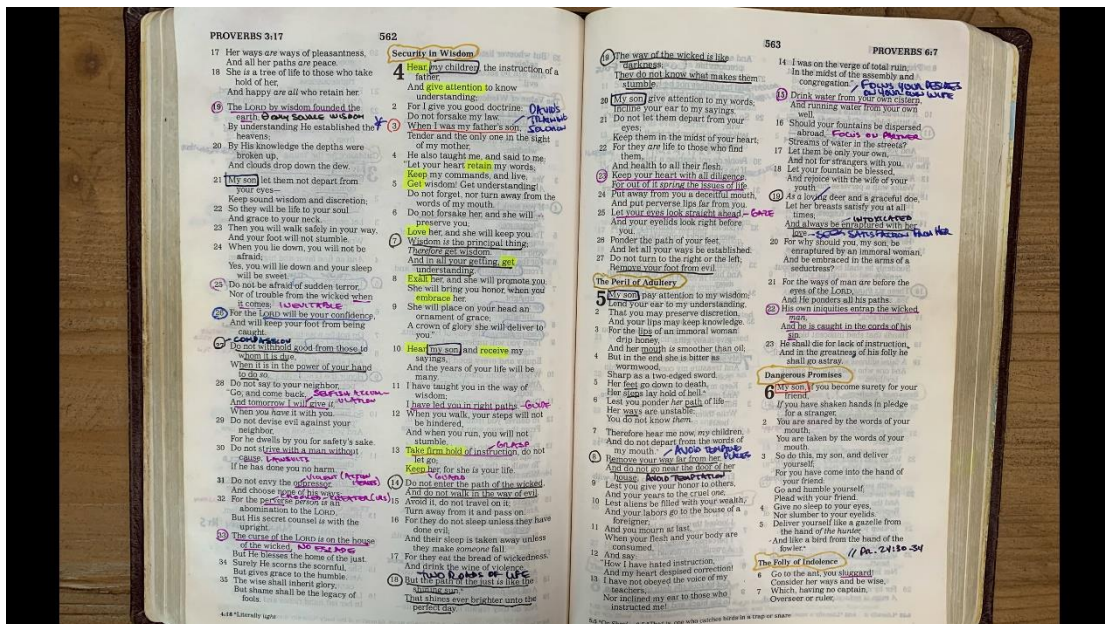 PROVERBS 3:17
562
17 Her ways are ways of pleasantness,
And all her paths are peace.
18 She is a tree of life to those who take
hold of her,
And happy are all who retain her.
19 The LORD by wisdom founded the
earth;
By understanding He established the
heavens;
20 By His knowledge the depths were
broken up,
And clouds drop down the dew.
21 My son, let them not depart from
your eyes—
Keep sound wisdom and discretion;
22 So they will be life to your soul
And grace to your neck.
23 Then you will walk safely in your way,
And your foot will not stumble.
24 When you lie down, you will not be
afraid;
Yes, you will lie down and your sleep
will be sweet.
25 Do not be afraid of sudden terror,
Nor of trouble from the wicked when
it comes; INEVITABLE
26 For the LORD will be your confidence,
And will keep your foot from being
caught.
COMPASSION
27 Do not withhold good from those to
whom it is due,
When it is in the power of your hand
to do so.
28 Do not say to your neighbor,
"Go, and come back, SELFISH ACTION
And tomorrow I will give it,"
When you have it with you.
29 Do not devise evil against your
neighbor,
For he dwells by you for safety's sake.
30 Do not strive with a man without
cause, LAWSUITS
If he has done you no harm.
31 Do not envy the oppressor, VIOLENT
And choose none of his ways;
32 For the perverse person is an
abomination to the LORD,
But His secret counsel is with the
upright.
33 The curse of the LORD is on the house
of the wicked, NO ESCAPE
But He blesses the home of the just.
34 Surely He scorns the scornful,
But gives grace to the humble.
35 The wise shall inherit glory,
But shame shall be the legacy of
fools.
Security in Wisdom
4 Hear, my children, the instruction of a
father,
And give attention to know
understanding;
2 For I give you good doctrine:
Do not forsake my law.
DAVID'S
TRAINING
SOLOMON
3 When I was my father's son,
Tender and the only one in the sight
of my mother,
4 He also taught me, and said to me:
"Let your heart retain my words;
Keep my commands, and live.
5 Get wisdom! Get understanding!
Do not forget, nor turn away from the
words of my mouth.
6 Do not forsake her, and she will
preserve you;
Love her, and she will keep you.
7 Wisdom is the principal thing;
Therefore get wisdom.
And in all your getting, get
understanding.
8 Exalt her, and she will promote you;
She will bring you honor, when you
embrace her.
9 She will place on your head an
ornament of grace;
A crown of glory she will deliver to
you."
10 Hear, my son, and receive my
sayings,
And the years of your life will be
many.
11 I have taught you in the way of
wisdom;
I have led you in right paths. GUIDE
12 When you walk, your steps will not
be hindered,
And when you run, you will not
stumble. GRASP
13 Take firm hold of instruction, do not
let go;
Keep her, for she is your life.
GUARD
14 Do not enter the path of the wicked,
And do not walk in the way of evil.
15 Avoid it, do not travel on it;
Turn away from it and pass on.
16 For they do not sleep unless they have
done evil;
And their sleep is taken away unless
they make someone fall.
17 For they eat the bread of wickedness,
And drink the wine of violence.
TWO ROADS OF LIFE
18 But the path of the just is like the
shining sun,
That shines ever brighter unto the
perfect day.
563
PROVERBS 6:7
19 The way of the wicked is like
darkness;
They do not know what makes them
stumble.
20 My son, give attention to my words;
Incline your ear to my sayings.
21 Do not let them depart from your
eyes;
Keep them in the midst of your heart;
22 For they are life to those who find
them,
And health to all their flesh.
23 Keep your heart with all diligence,
For out of it spring the issues of life.
24 Put away from you a deceitful mouth,
And put perverse lips far from you.
25 Let your eyes look straight ahead, GAZE
And your eyelids look right before
you.
26 Ponder the path of your feet,
And let all your ways be established.
27 Do not turn to the right or the left;
Remove your foot from evil.
The Peril of Adultery
5 My son, pay attention to my wisdom;
Lend your ear to my understanding,
2 That you may preserve discretion,
And your lips may keep knowledge.
3 For the lips of an immoral woman
drip honey,
And her mouth is smoother than oil;
4 But in the end she is bitter as
wormwood,
Sharp as a two-edged sword.
5 Her feet go down to death,
Her steps lay hold of hell.
6 Lest you ponder her path of life—
Her ways are unstable;
You do not know them.
7 Therefore hear me now, my children,
And do not depart from the words of
my mouth. AVOID TEMPTING
PLACES
8 Remove your way far from her,
And do not go near the door of her
house, AVOID TEMPTATION
9 Lest you give your honor to others,
And your years to the cruel one;
10 Lest aliens be filled with your wealth,
And your labors go to the house of a
foreigner;
11 And you mourn at last,
When your flesh and your body are
consumed,
12 And say:
"How I have hated instruction,
And my heart despised correction!
13 I have not obeyed the voice of my
teachers,
Nor inclined my ear to those who
instructed me!
14 I was on the verge of total ruin,
In the midst of the assembly and
congregation."
FOCUS YOUR DESIRES
ON YOUR OWN WIFE
15 Drink water from your own cistern,
And running water from your own
well.
16 Should your fountains be dispersed
abroad, FOCUS ON PARTNER
Streams of water in the streets?
17 Let them be only your own,
And not for strangers with you.
18 Let your fountain be blessed,
And rejoice with the wife of your
youth.
19 As a loving deer and a graceful doe,
Let her breasts satisfy you at all
times; INTOXICATED
And always be enraptured with her
love. SEEK SATISFACTION FROM HER
20 For why should you, my son, be
enraptured by an immoral woman,
And be embraced in the arms of a
seductress?
21 For the ways of man are before the
eyes of the LORD,
And He ponders all his paths.
22 His own iniquities entrap the wicked
man,
And he is caught in the cords of his
sin.
23 He shall die for lack of instruction,
And in the greatness of his folly he
shall go astray.
Dangerous Promises
6 My son, if you become surety for your
friend,
If you have shaken hands in pledge
for a stranger,
2 You are snared by the words of your
mouth;
You are taken by the words of your
mouth.
3 So do this, my son, and deliver
yourself;
For you have come into the hand of
your friend:
Go and humble yourself;
Plead with your friend.
4 Give no sleep to your eyes,
Nor slumber to your eyelids.
5 Deliver yourself like a gazelle from
the hand of the hunter,
And like a bird from the hand of the
fowler.
// PR. 24:30-34
The Folly of Indolence
6 Go to the ant, you sluggard!
Consider her ways and be wise,
7 Which, having no captain,
Overseer or ruler,